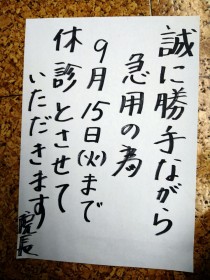 誠に勝手ながら
急用の為
9月15日(火)まで
休診とさせて
いただきます
院長